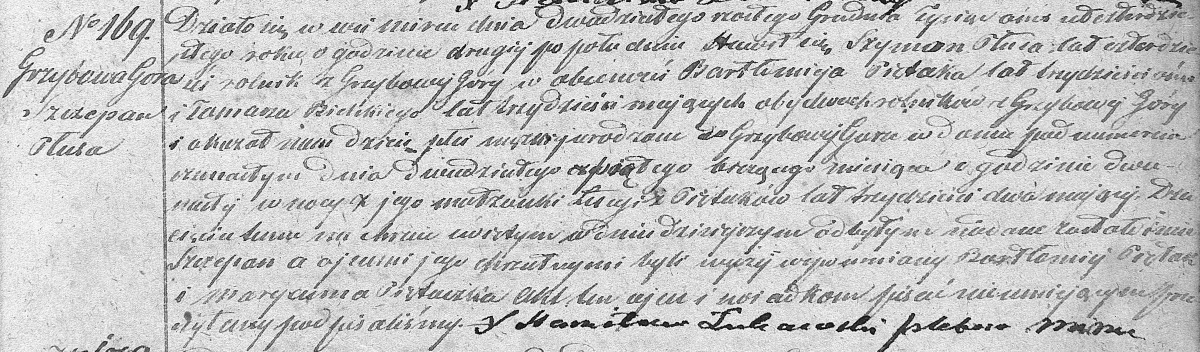 No 169. Działo się we wsi mircu dnia dwudziestego szostego Grudnia Tysiąc ośmset czterdzie
stego roku o godzinie drugiej po południu Stawił się Szymon Płusa lat czterdzie
Grzybowa Gora
ści rolnik z Grzybowy Góry w obecności Bartłomieja Pietaka lat trzydzieści ośm
Szczepan
i Tomasza Bielskiego lat trzydzieści mających obydwóch rolników z Grzybowy Góry
Płusa
i okazał nam dziecię płci męzkiej urodzone w Grzybowej Gorze w domu pod numerem
dnia dwudziestego piątego bieżącego miesiąca o godzinie dwu-
nasty w nocy z jego małżonki z Pietaków lat trzydzieści dwa mający. Dzie
cięciu temu na chrzcie świętym w dniu dzisiejszym odbytym nadane zostało imie
Szczepan a ojcami jego chrzestnymi byli wyży wspomniany Bartłomiej Pietak
i Maryanna Pietaczka Akt ten ojcu i świadkom pisać nieumiejącym prze
czytany podpisaliśmy. X Stanisław pleban